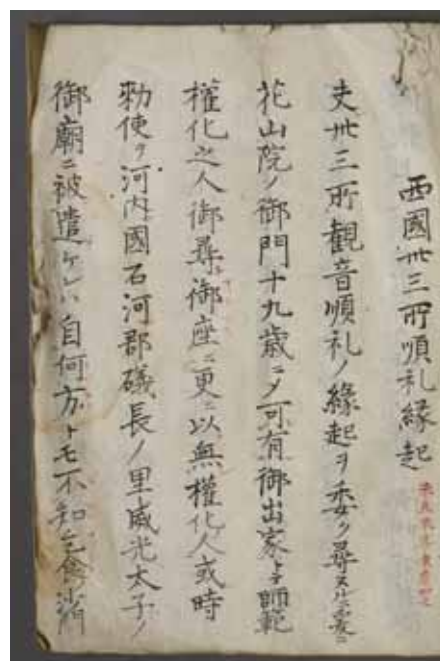 西國卅三所順礼縁起
夫卅三所観音順礼ノ縁起ヲ委ク尋ヌルニ
花山院ノ御門十九歳ニメ可有御出家トテ師範
權化之人御尋御座ニ更ニ以無權化人或時
勅使ヲ河内國石河郡磯長ノ里威光太子ノ
御廟ニ被遣ケレハ自何方トモ不知乞食沙門